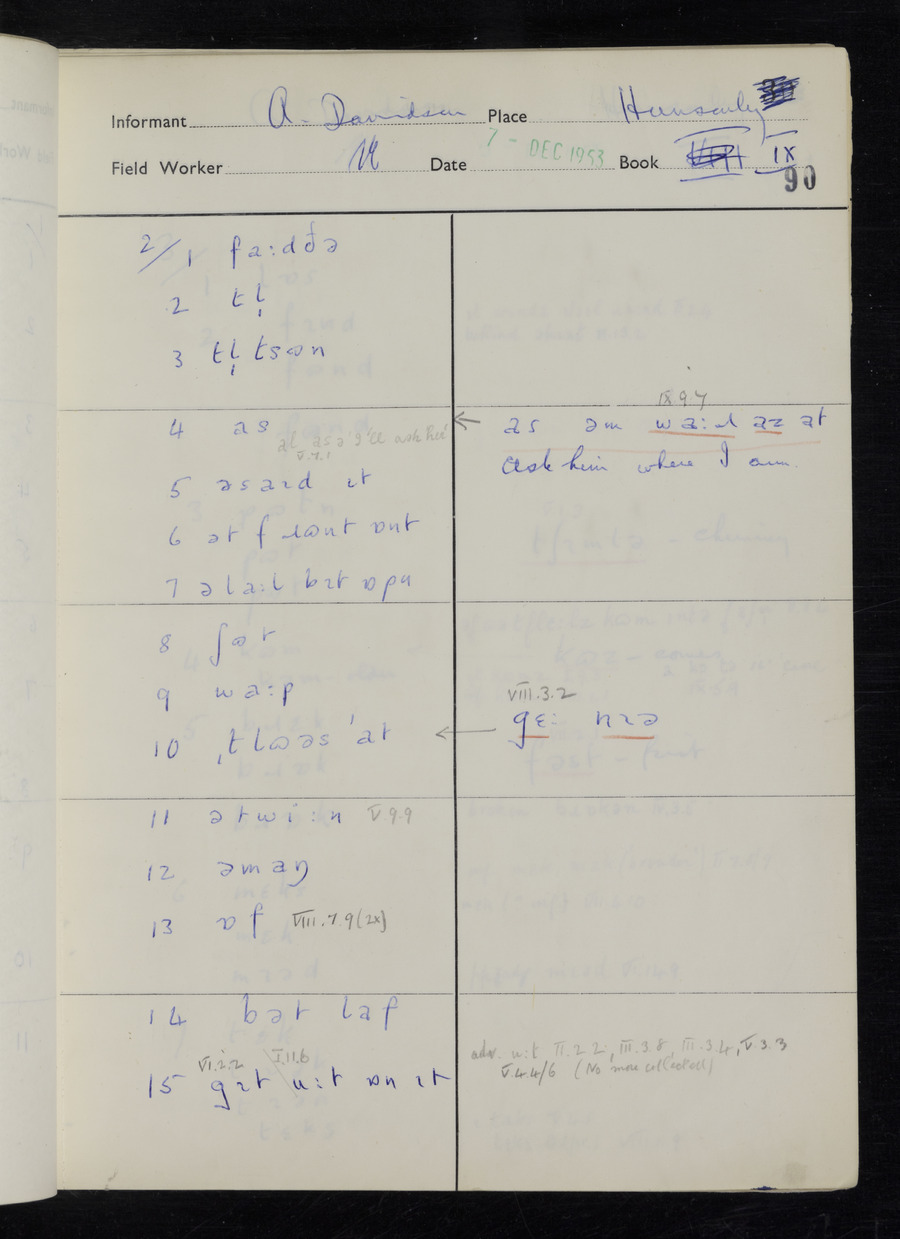 Informant A. Davidson Place Hunsonby
Field Worker Date 7 - DEC 1953 Book IX
90
2/1 fa:dðə
2 tl̩
3 tl̩ tsɷn
4 as
al as ə I'll ask her
V.7.1
IX.9.7
← as əm wa:ɹ az at
ask him where I am.
5 əsaɪd ɪt
6 ət fɹɷnt ɒnt
7 əla:l bɪt ɒpn
8 ʃɷt
9 wa:p
10 ˌtlɷəs ˈət
VIII.3.2
← gɛ: nɪə
11 ətwi:n V.9.9
12 əmaŋ
13 ɒf VIII.7.9 (2x)
14 bət laf
VI.2.2 I.11.6
15 gɪt u:t ɒn ɪt
adv. u:t II.2.2, III.3.8, III.3.4, V.3.3
V.4.4/6 (No more collected)